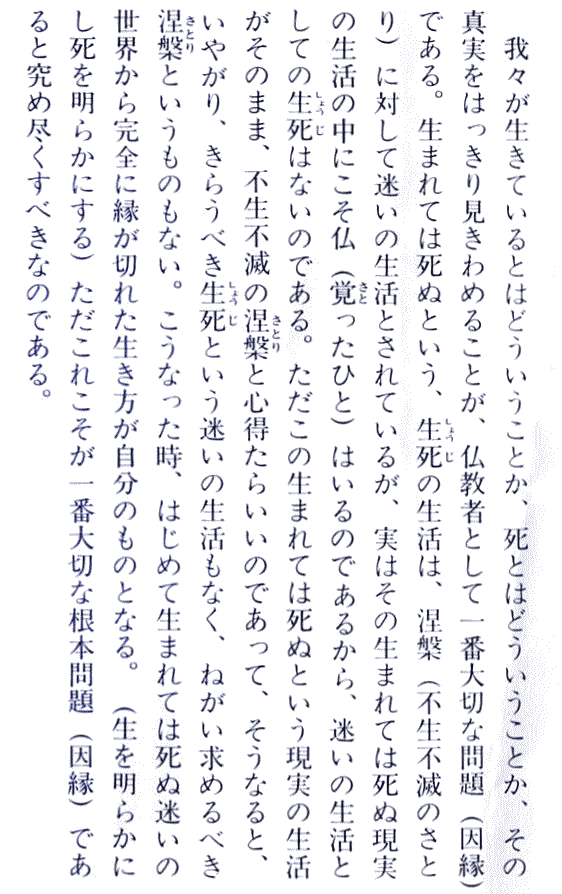 我々が生きているとはどういうことか、死とはどういうことか、その
真実をはっきり見きわめることが、仏教者として一番大切な問題（因縁）
である。生まれては死ぬという、生死の生活は、涅槃（不生不滅のさと
り）に対して迷いの生活とされているが、実はその生まれては死ぬ現実
の生活の中にこそ仏（覚ったひと）はいるのであるから、迷いの生活と
しての生死はないのである。ただこの生まれては死ぬという現実の生活
がそのまま、不生不滅の涅槃と心得たらいいのであって、そうなると、
いやがり、きらうべき生死という迷いの生活もなく、ねがい求めるべき
涅槃というものもない。こうなった時、はじめて生まれては死ぬ迷いの
世界から完全に縁が切れた生き方が自分のものとなる。（生を明らかに
し死を明らかにする）ただこれこそが一番大切な根本問題（因縁）であ
ると究め尽くすべきなのである。